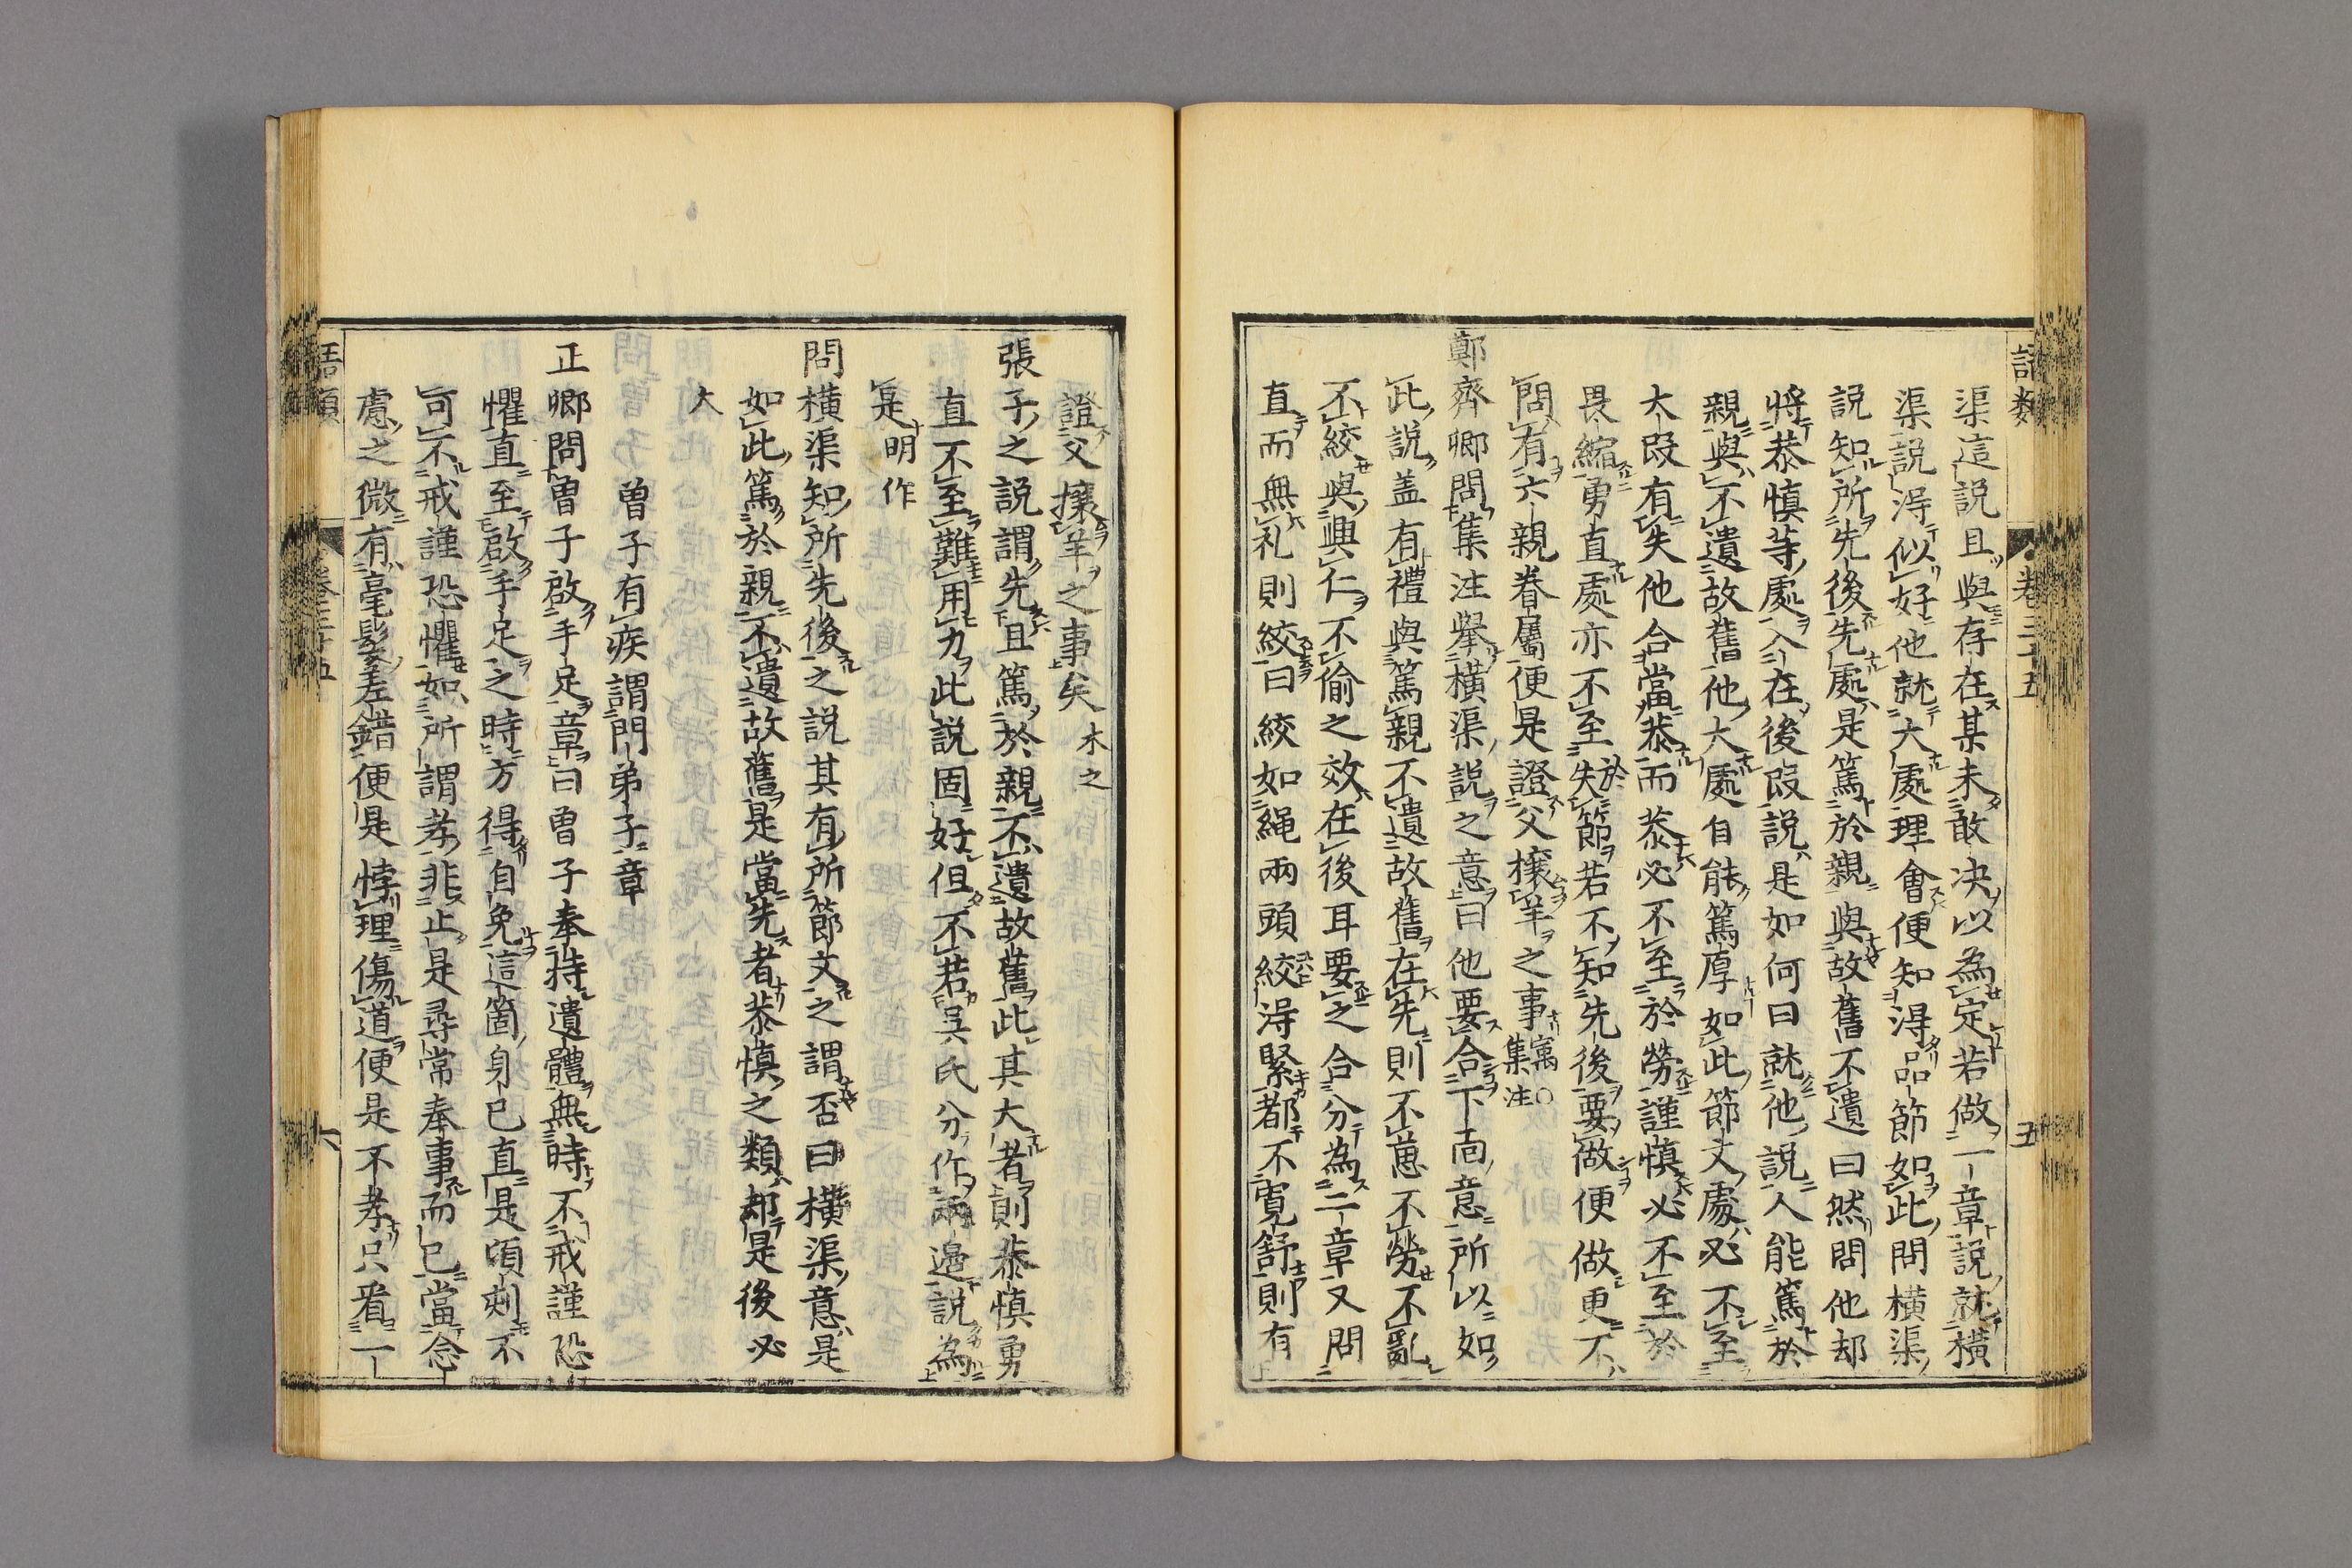 語類 卷三十五 五
渠這說且與存在某未敢决以為定若做一章說就橫
渠說得似好他就大處理會便知得品節如此問橫渠
說知所先後先處是篤於親與故舊不遺曰然問他却
將恭慎等處入在後段說是如何曰就他說人能篤於
親與不遺故舊他大處自能篤厚如此節文處必不至
大段有失他合當恭而恭必不至於勞謹慎必不至於
畏縮勇直處亦不至於失節若不知先後要做便做更不
問有六親眷屬便是證父攘羊之事㝢○集注
鄭齊卿問集注舉橫渠說之意曰他要合下面意所以如
此說盖有禮與篤親不遺故舊在先則不葸不勞不亂
不絞與興仁不偷之效在後耳要之合分為二章又問
直而無礼則絞曰絞如繩兩頭絞得緊都不寬舒則有
證父攘羊之事矣木之
張子之說謂先且篤於親不遺故舊此其大者則恭慎勇
直不至難用力此說固好但不若吳氏分作兩邊說為
是明作
問橫渠知所先後之說其有所節文之謂否曰橫渠意是
如此篤於親不遺故舊是當先者恭慎之類却是後必
大
曾子有疾謂門弟子章
正卿問曾子啟手足章曰曾子奉持遺體無時不戒謹恐
懼直至啟手足之時方得自免這箇身已直是頃刻不
可不戒謹恐懼如所謂孝非止是尋常奉事而已當念
慮之微有毫髮差錯便是悖理傷道便是不孝只看一
語類 卷三十五 六